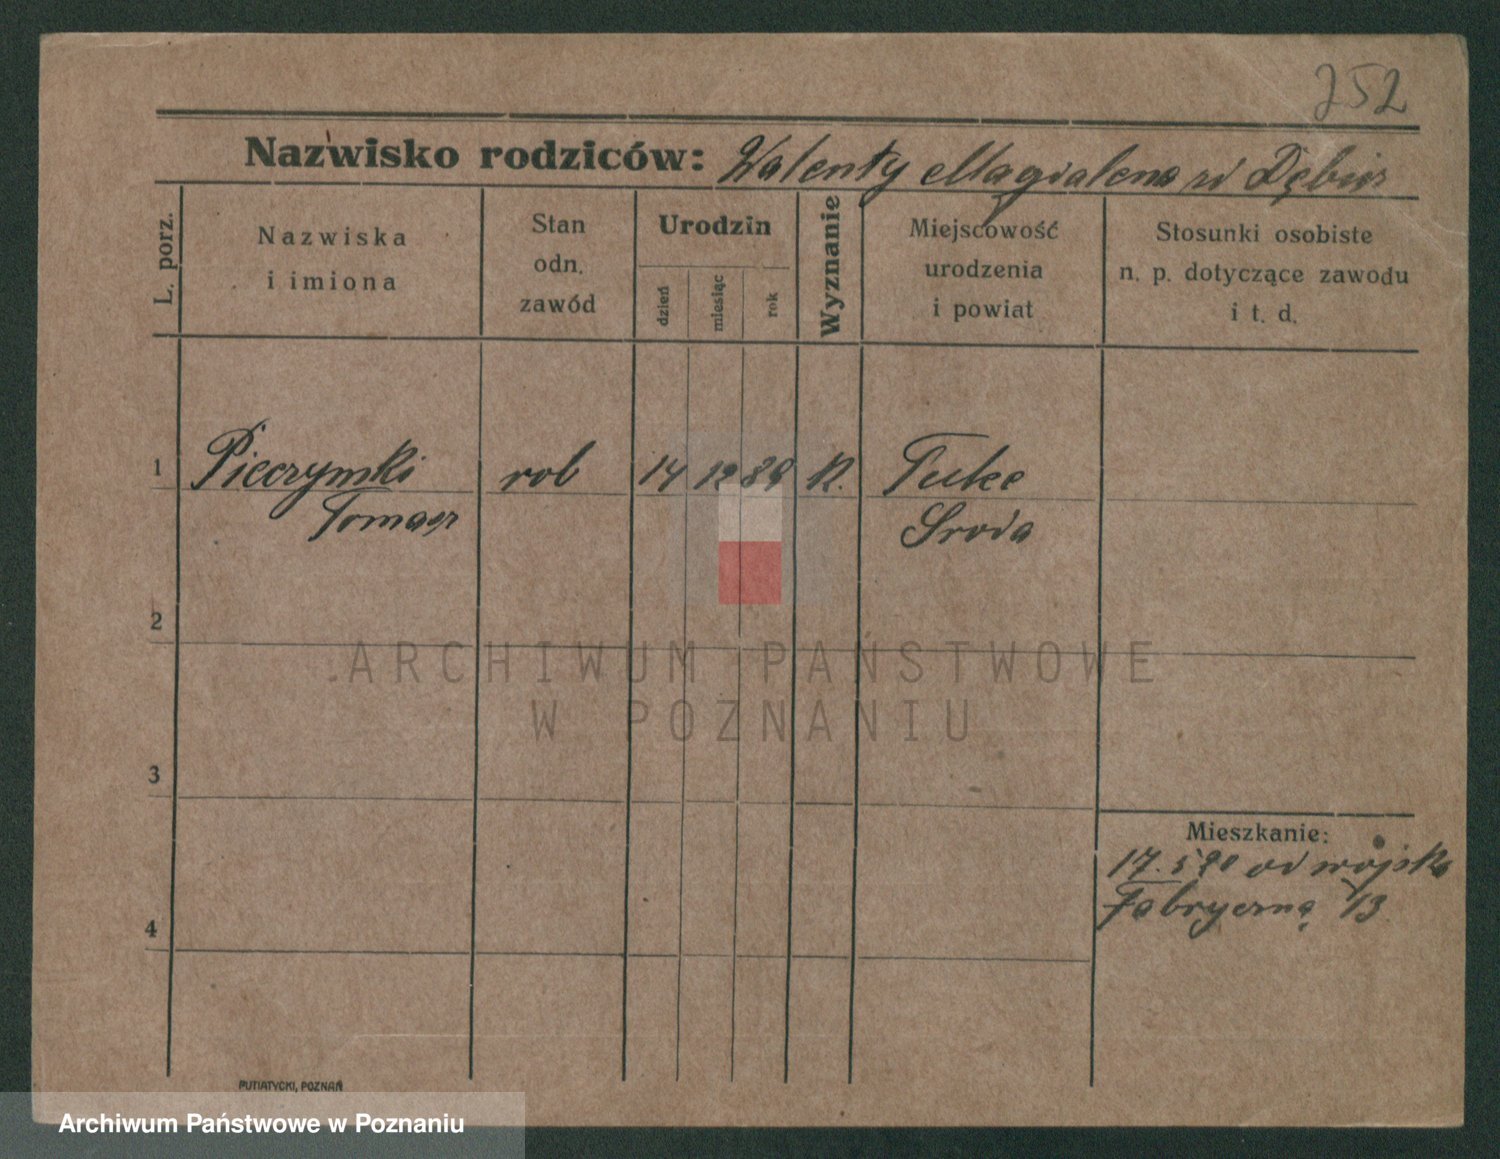 252
Nazwisko rodziców: Walenty Magdalena zd Dębicz
L. porz.
Nazwiska i imiona
Stan odn. zawód
Urodzin
dzień
miesiąc
rok
Wyznanie
Miejscowość urodzenia i powiat
Stosunki osobiste n. p. dotyczące zawodu i t. d.
1 rob 14 12 89 K. Tulce
Tomasz Sroda
2
3
4
Mieszkanie:
17. 5 20 od wojska
Fabryczną 13
ARCHIWUM PAŃSTWOWE
W POZNANIU
PUTIATYCKI, POZNAŃ
Archiwum Państwowe w Poznaniu